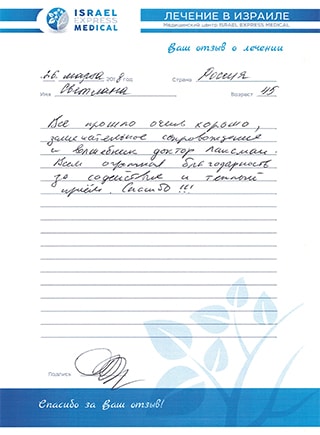 ISRAEL
EXPRESS
MEDICAL
ЛЕЧЕНИЕ В ИЗРАИЛЕ
Медицинский центр ISRAEL EXPRESS MEDICAL
Ваш отзыв о лечении
26 марта 2018 год Страна Россия
Имя Светлана Возраст 45
Все прошло очень хорошо,
замечательное сопровождение
и волшебник доктор
Всем огромная благодарность
за содействие и теплый
приём. Спасибо !!!
Подпись
Спасибо за Ваш отзыв!